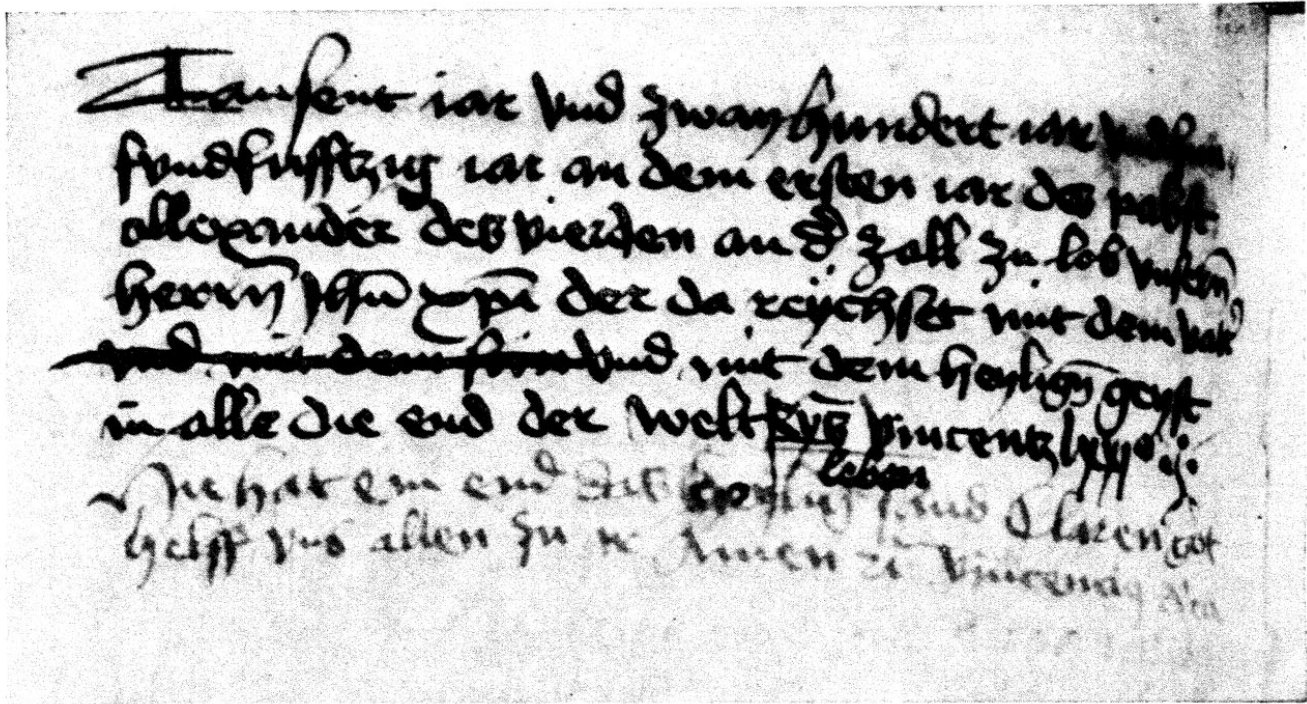 Tausent iar vnd zway hundert iar
fvndfufftzig iar an dem ersten iar des pabst
allexander des vierden an d̄ zall zu lob vnsern̄
herrn̄ Jhū xp̄i der da reychset mit dem vat'
vnd mit dem sun vnd mit dem heylign̄ geyst
in alle die end der welt vincentz lxxij°
leben
hie hat ein end das sand Claren got
helff vns allen zu Amen